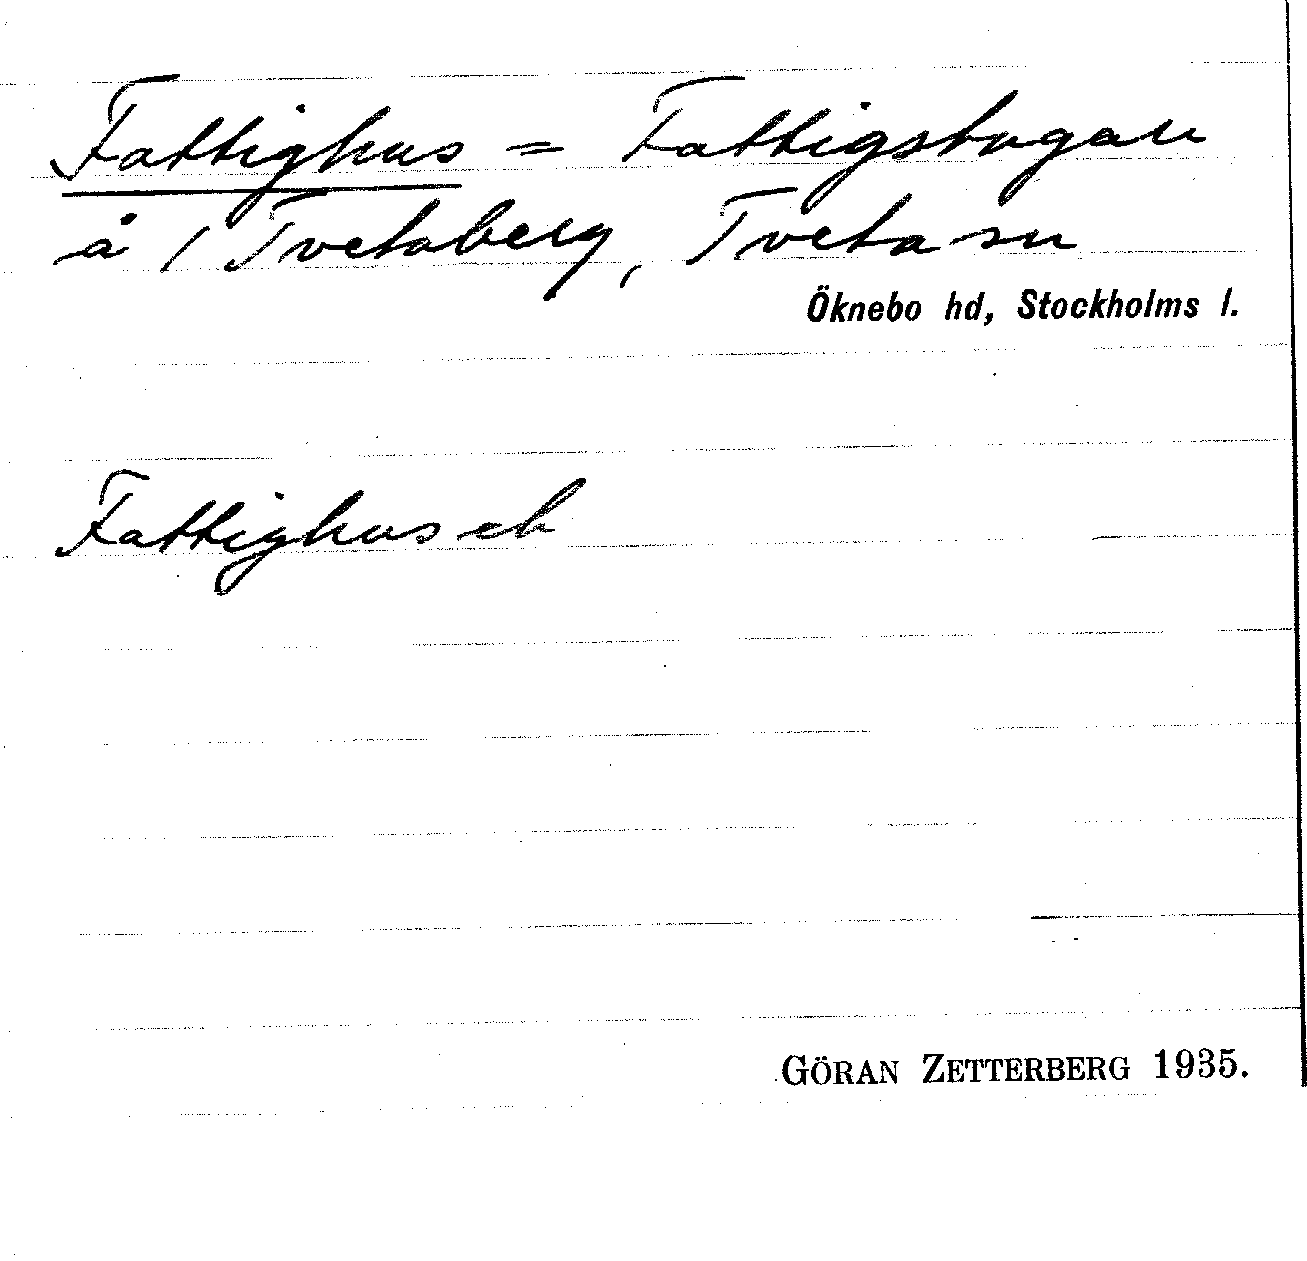 Fattighus = Fattigstugan
å 1 Tvetaberg, Tveta sn
Öknebo hd, Stockholms l.
Fattighus ek
GÖRAN ZETTERBERG 1935.